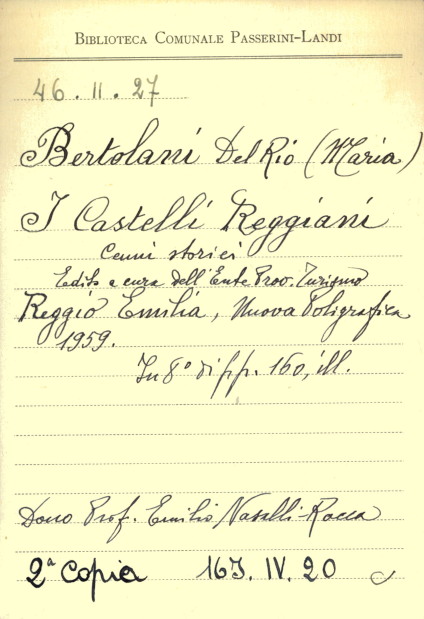 BIBLIOTECA COMUNALE PASSERINI-LANDI
46.II.27
Bertolani Del Rio (Maria)
I Castelli Reggiani
Cenni storici
Edito a cura dell'Ente Prov. Turismo
Reggio Emilia, Nuova Poligrafica
1959.
In 8° di pp. 160, ill.
Dono Prof. Emilio Nasalli-Rocca
2ª Copia 163.IV.20